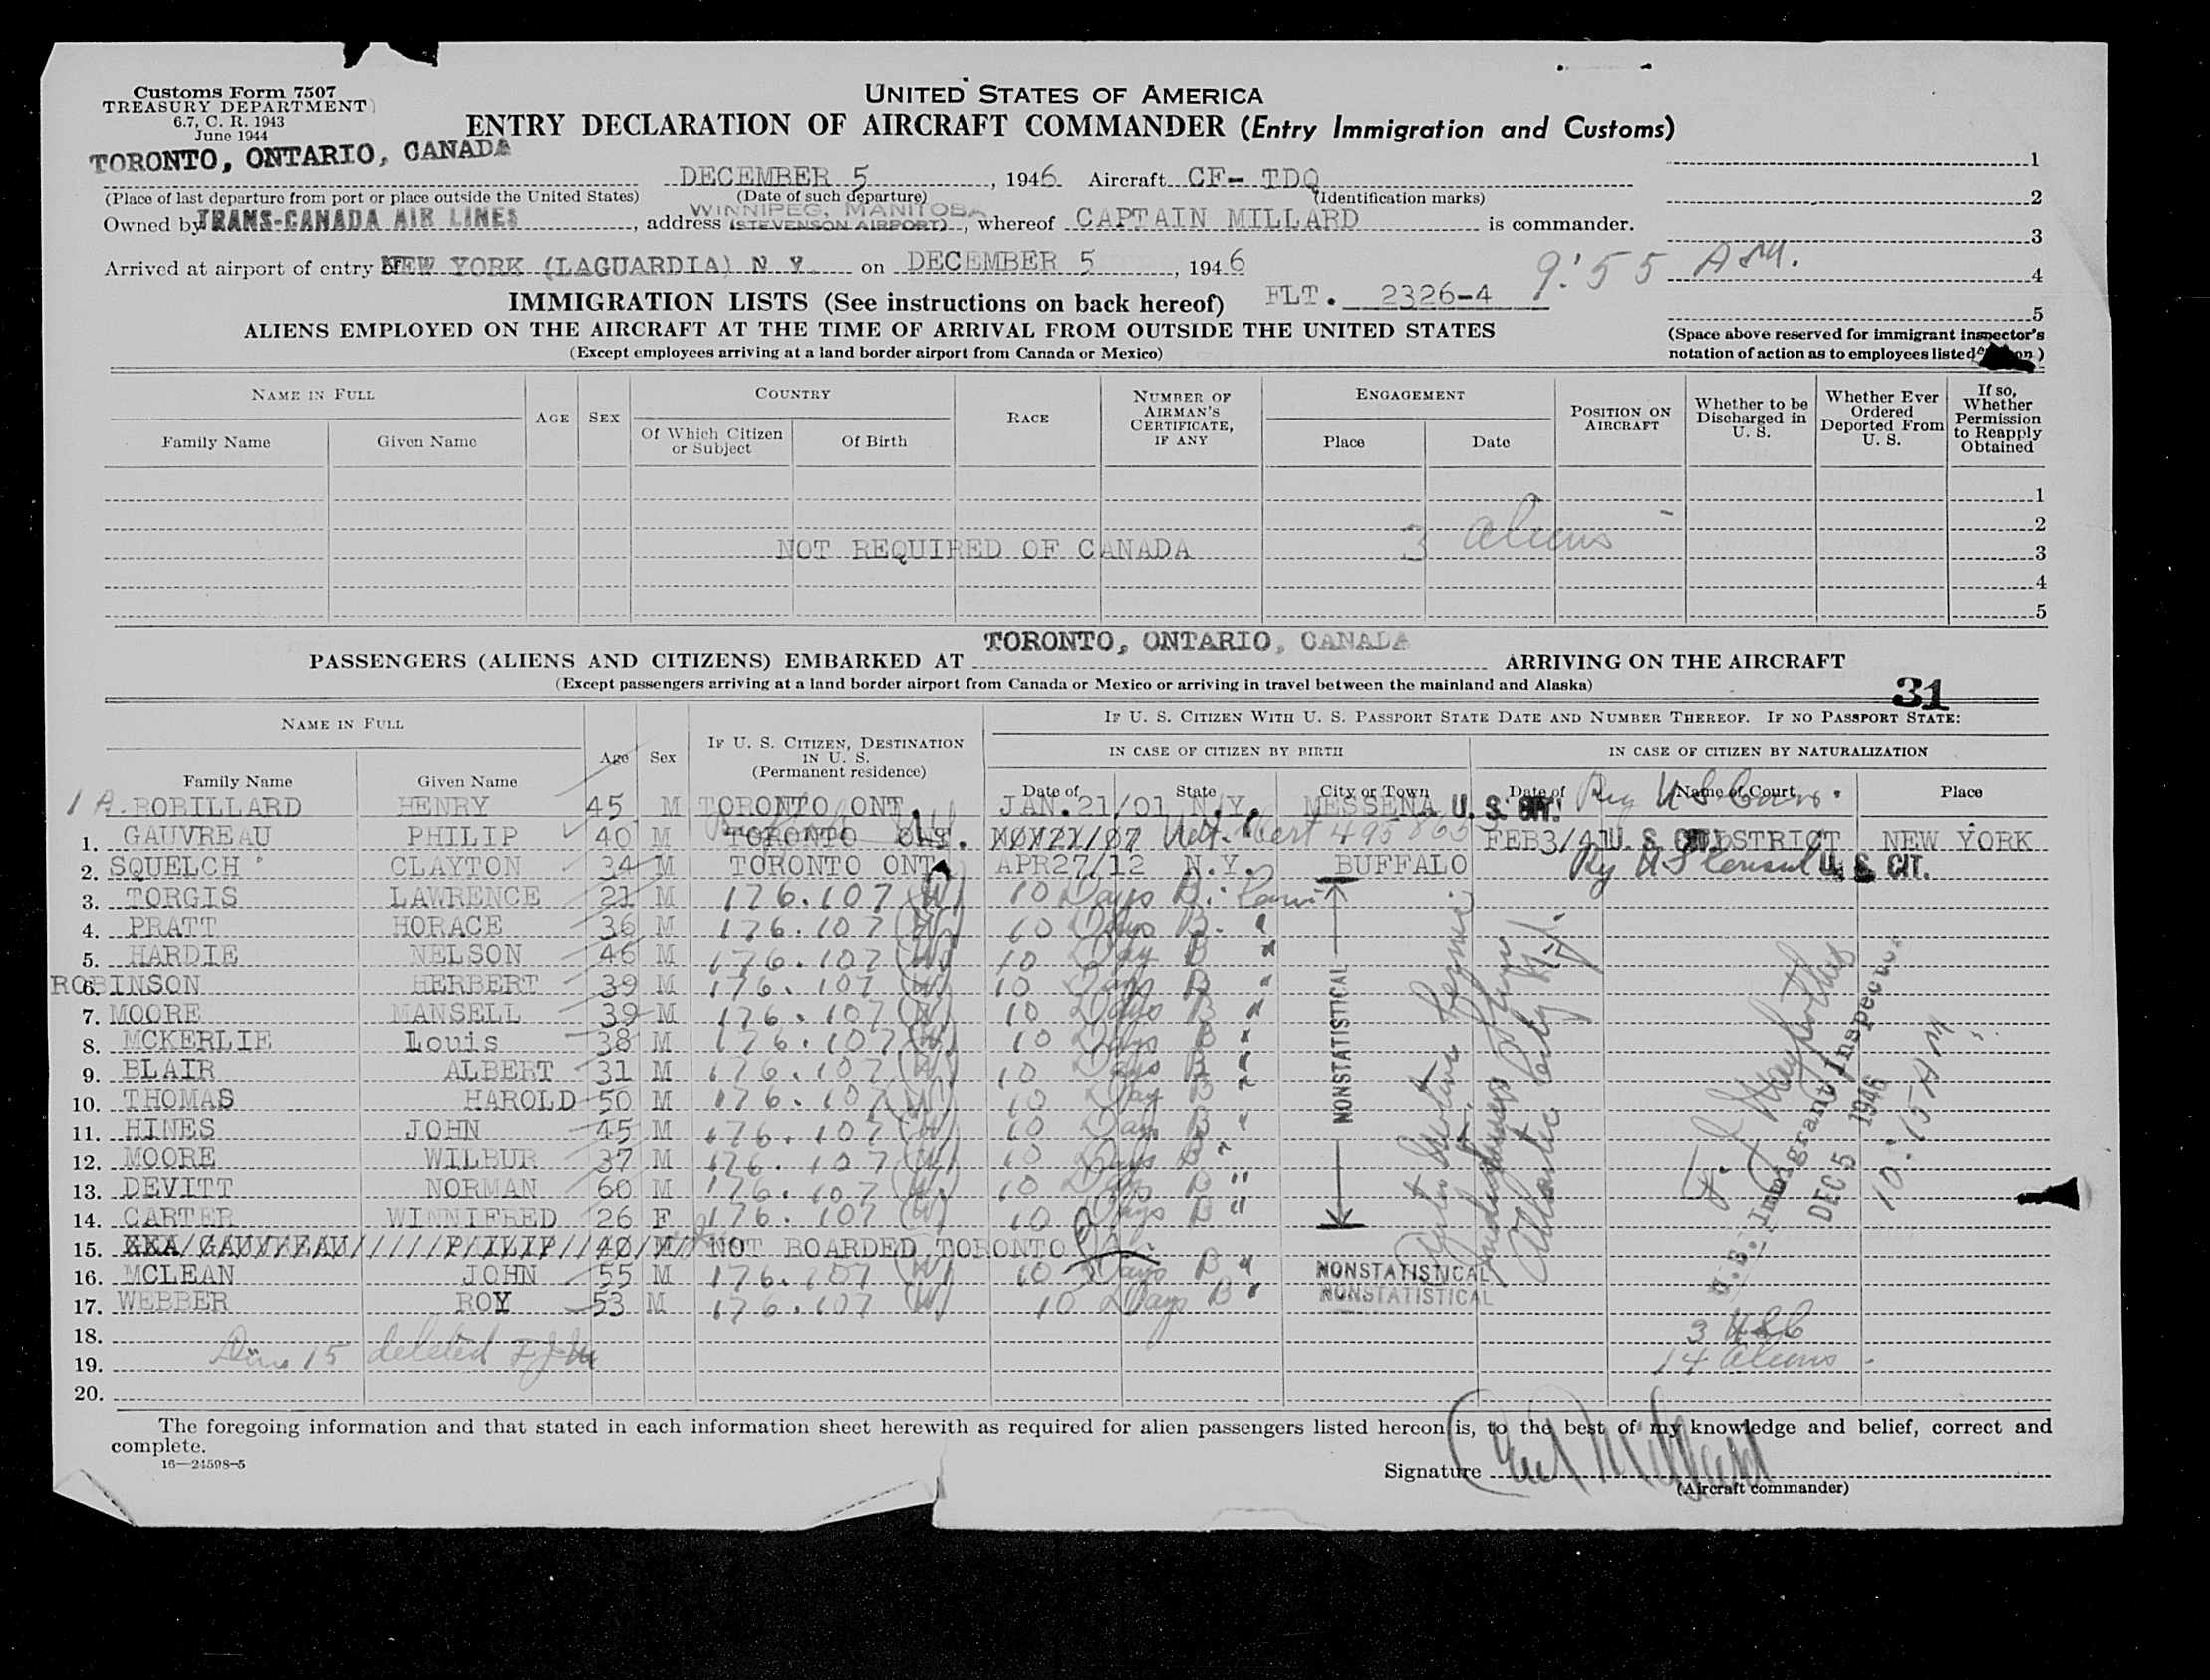 Customs Form 7507
TREASURY DEPARTMENT
6.7, C. R. 1943
June 1944
UNITED STATES OF AMERICA
ENTRY DECLARATION OF AIRCRAFT COMMANDER (Entry Immigration and Customs)
TORONTO, ONTARIO, CANADA DECEMBER 5, 1946 Aircraft CF- TDQ
(Place of last departure from port or place outside the United States) (Date of such departure) (Identification marks)
WINNIPEG, MANITOBA
Owned by TRANS-CANADA AIR LINES, address (STEVENSON AIRPORT), whereof CAPTAIN MILLARD is commander.
Arrived at airport of entry NEW YORK (LAGUARDIA) N Y. on DECEMBER 5, 1946
9:55 AM.
1
2
3
4
5
IMMIGRATION LISTS (See instructions on back hereof) FLT. 2326-4
ALIENS EMPLOYED ON THE AIRCRAFT AT THE TIME OF ARRIVAL FROM OUTSIDE THE UNITED STATES
(Except employees arriving at a land border airport from Canada or Mexico)
(Space above reserved for immigrant inspector's
notation of action as to employees listed )
NAME IN FULL
Family Name Given Name AGE SEX
COUNTRY
Of Which Citizen or Subject Of Birth
RACE
NUMBER OF AIRMAN'S CERTIFICATE, IF ANY
ENGAGEMENT
Place Date
POSITION ON AIRCRAFT
Whether to be Discharged in U. S.
Whether Ever Ordered Deported From U. S.
If so, Whether Permission to Reapply Obtained
1
2
NOT REQUIRED OF CANADA 3 aliens 3
4
5
TORONTO, ONTARIO, CANADA
PASSENGERS (ALIENS AND CITIZENS) EMBARKED AT ARRIVING ON THE AIRCRAFT
(Except passengers arriving at a land border airport from Canada or Mexico or arriving in travel between the mainland and Alaska)
31
NAME IN FULL
Family Name Given Name Age Sex
IF U. S. CITIZEN, DESTINATION IN U. S. (Permanent residence)
IF U. S. CITIZEN WITH U. S. PASSPORT STATE DATE AND NUMBER THEREOF. IF NO PASSPORT STATE:
IN CASE OF CITIZEN BY BIRTH IN CASE OF CITIZEN BY NATURALIZATION
Date of State City or Town Date of Name of Court Place
1 A. ROBILLARD HENRY 45 M TORONTO ONT. JAN.21/01 N.Y. MESSENA U. S. CIT.
1. GAUVREAU PHILIP 40 M TORONTO ONT. NOV21/07 Nat. Cert 495863 FEB3/41 U. S. CIT. DISTRICT NEW YORK
2. SQUELCH CLAYTON 34 M TORONTO ONT APR27/12 N.Y. BUFFALO U. S. CIT.
3. TORGIS LAWRENCE 21 M 176.107 (W) 10 Days B.
4. PRATT HORACE 36 M 176.107 (W) 10 Days B. "
5. HARDIE NELSON 46 M 176.107 (W) 10 Day B "
6. ROBINSON HERBERT 39 M 176.107 (W) 10 Days B "
7. MOORE MANSELL 39 M 176.107 (W) 10 Days B "
8. MCKERLIE Louis 38 M 176.107 (W) 10 Days B "
9. BLAIR ALBERT 31 M 176.107 (W) 10 Days B "
10. THOMAS HAROLD 50 M 176.107 (W) 10 Day B "
11. HINES JOHN 45 M 176.107 (W) 10 Days B "
12. MOORE WILBUR 37 M 176.107 (W) 10 Days B "
13. DEVITT NORMAN 60 M 176.107 (W) 10 Days B "
14. CARTER WINNIFRED 26 F 176.107 (W) 10 Days B "
15. GAUVREAU PHILIP 40 M NOT BOARDED TORONTO
16. MCLEAN JOHN 55 M 176.107 (W) 10 Days B " NONSTATISTICAL
17. WEBBER ROY 53 M 176.107 (W) 10 Days B " NONSTATISTICAL
18. 3 USC
19. 15 deleted FJM 14 aliens.
20.
NONSTATISTICAL
Atlantic City N.J.
U. S. Immigrant Inspector
DEC 5 1946
10:15 AM
The foregoing information and that stated in each information sheet herewith as required for alien passengers listed hereon is, to the best of my knowledge and belief, correct and
complete.
16—24598-5
Signature
(Aircraft commander)